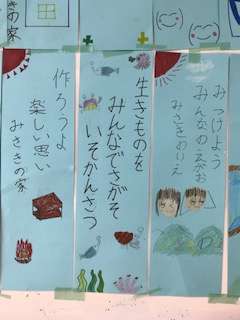 みつけよう
みんなのえがお
みさきのいえ
生きものを
みんなでさがそ
いそかんさつ
作ろうよ
楽しい思い
みさきの家
きの家